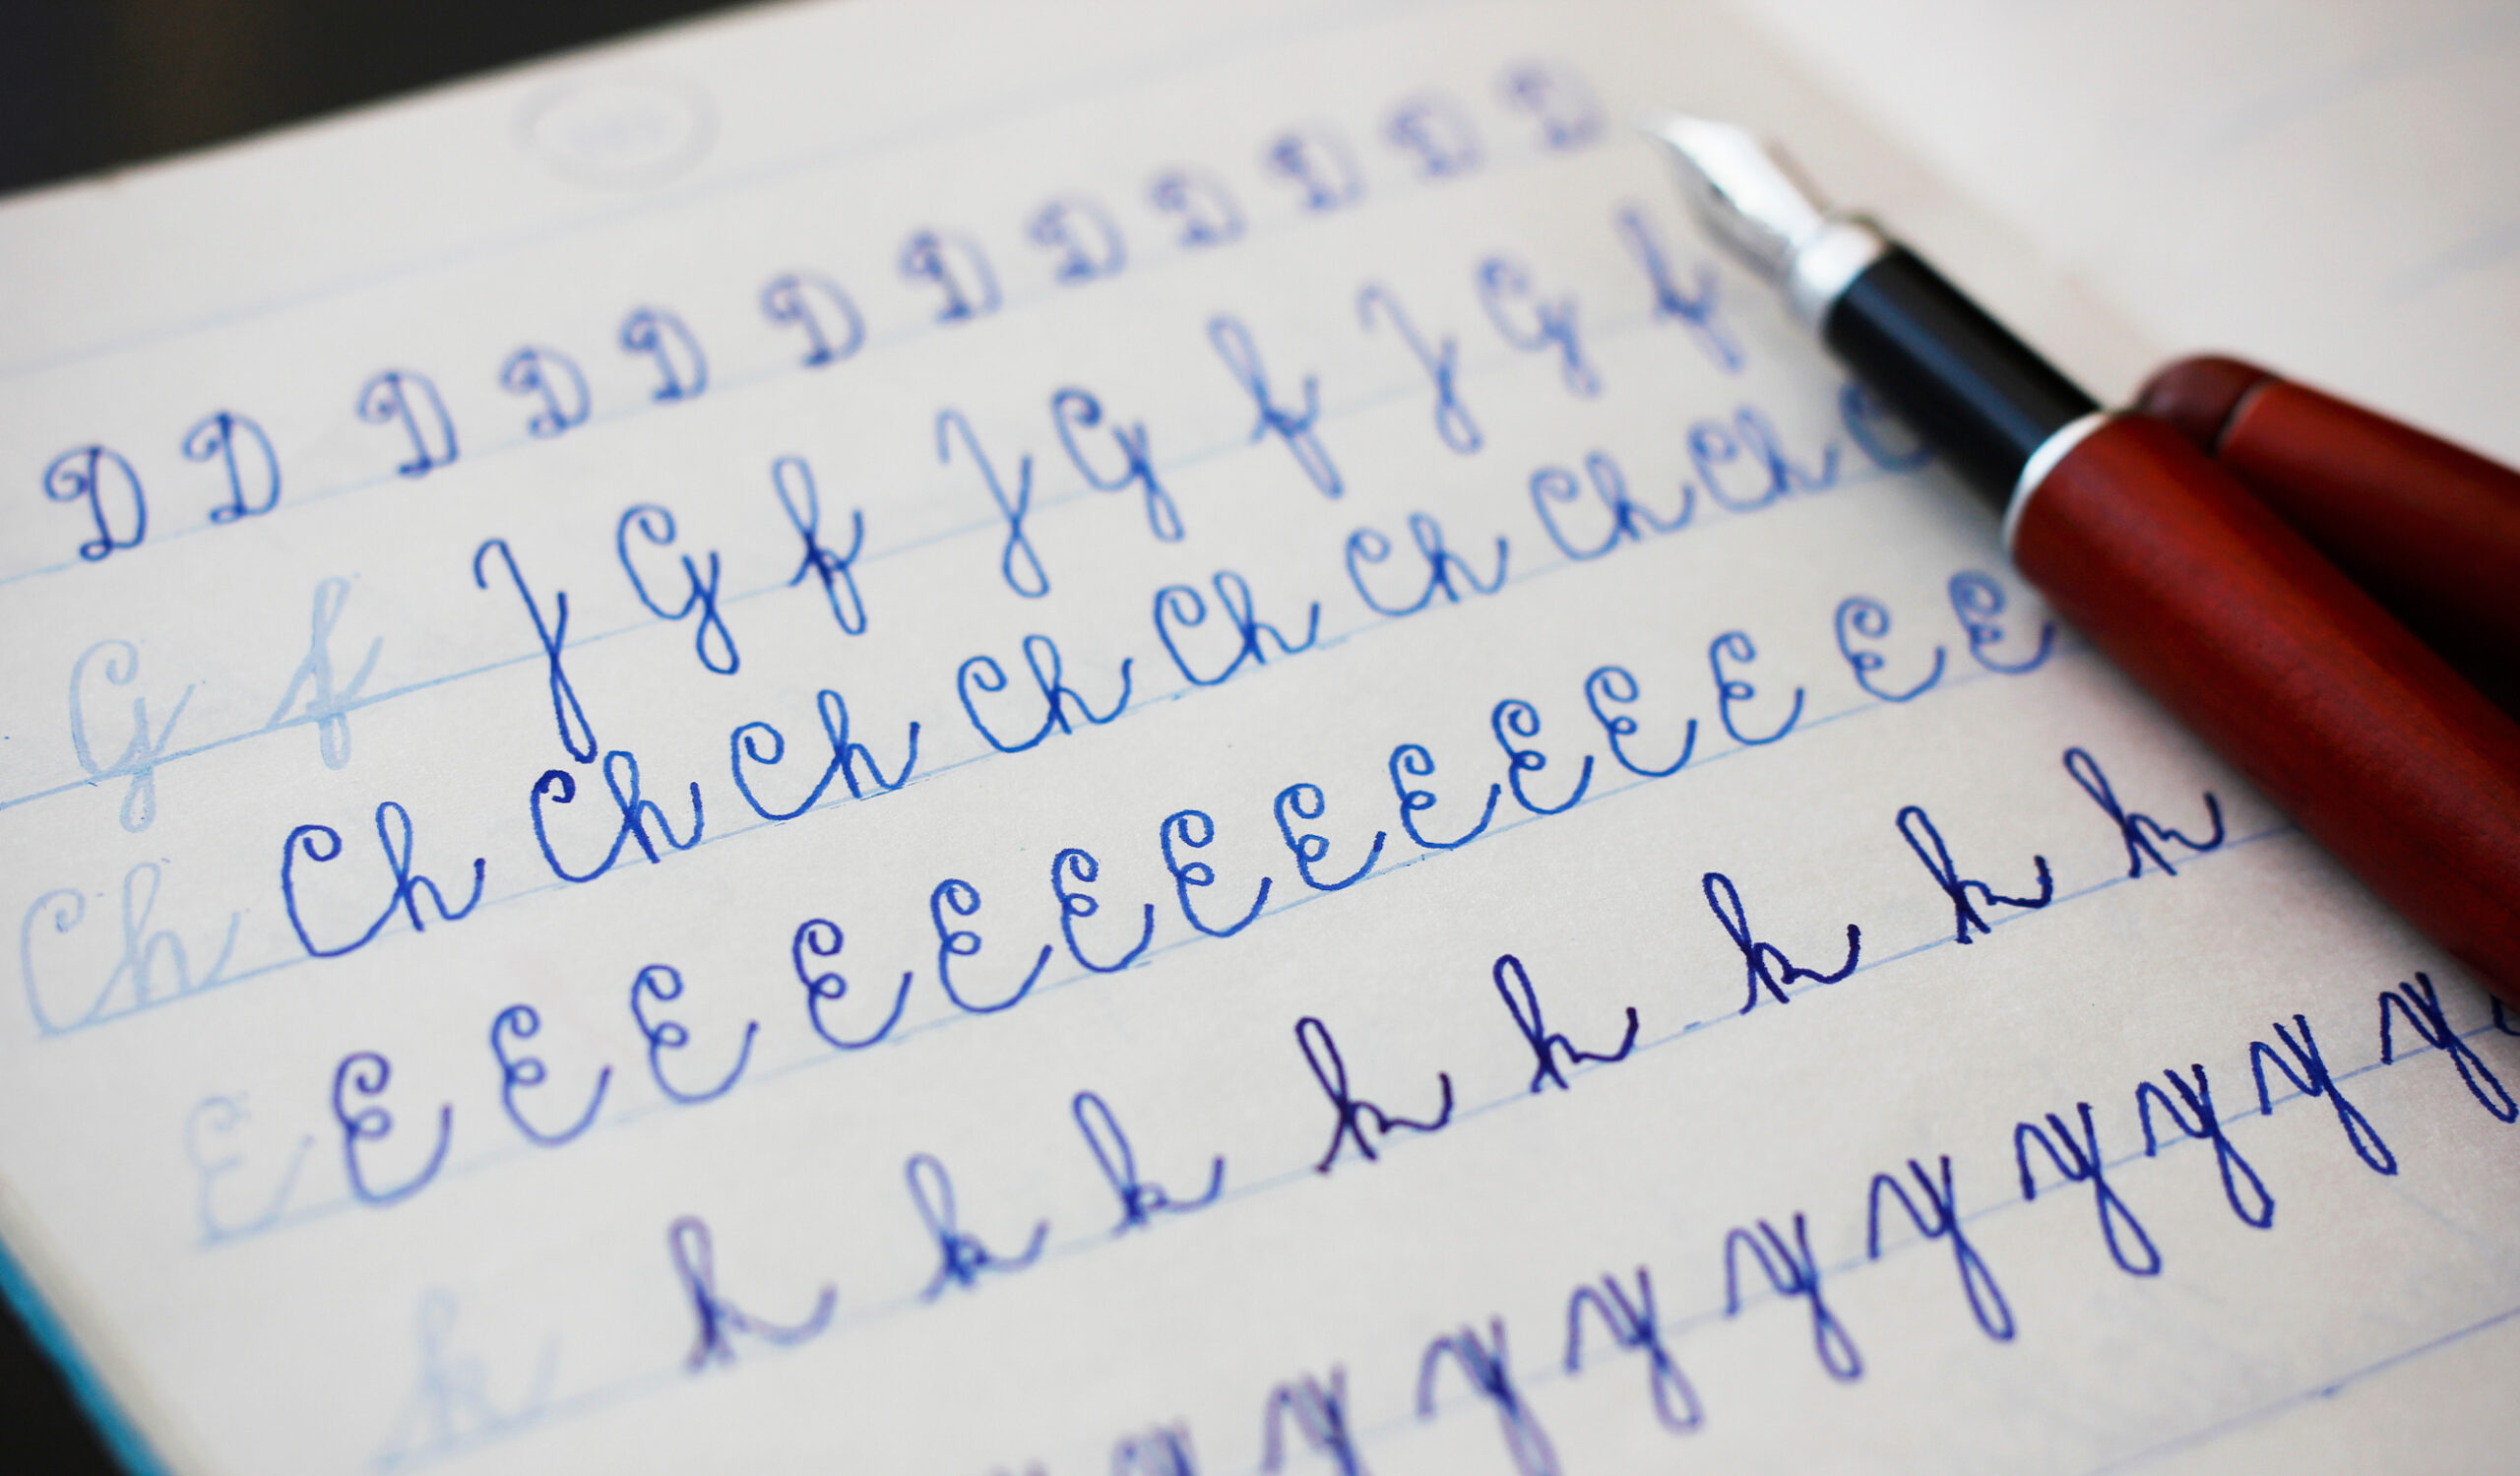 D D D D D D D D D D D D
G f J G f J G f J G f
Ch Ch Ch Ch Ch Ch Ch Ch Ch C
E E E E E E E E E E E E E E E
k k k k k k k k k
y y y y y y y y y y